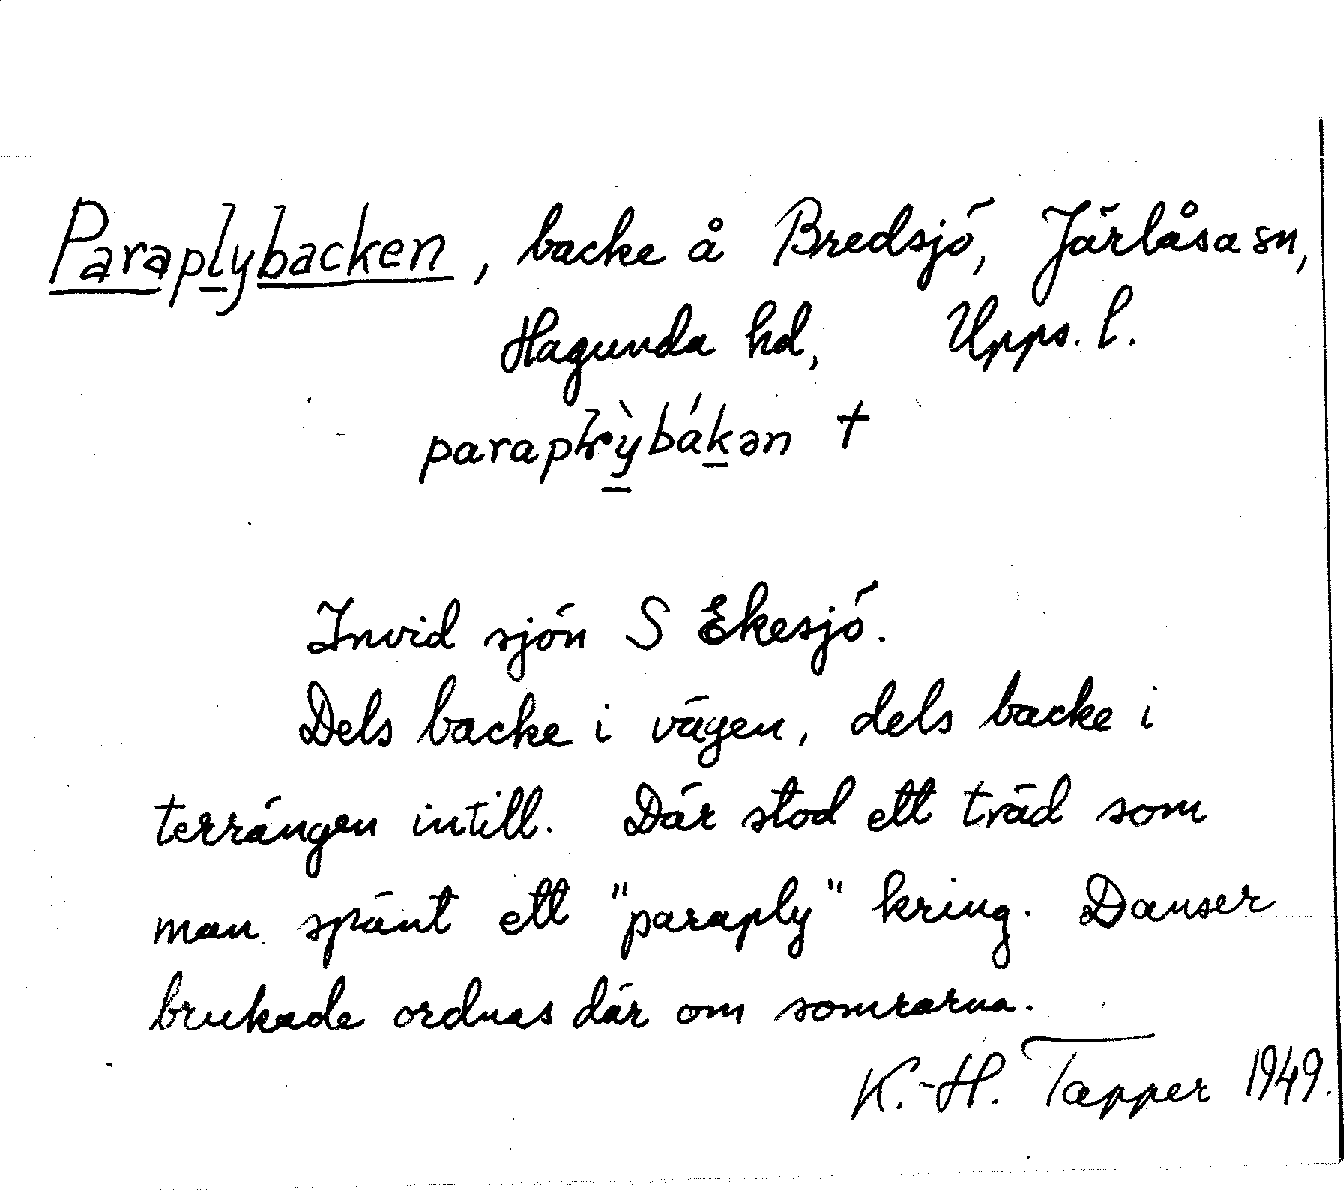 Paraplybacken, backe å Bredsjö, Järlåsa sn,
Hagunda hd, Upps. l.
paraplỳbákən †
Invid sjön S Ekesjö.
Dels backe i vägen, dels backe i
terrängen intill. Där stod ett träd som
man spänt ett "paraply" kring. Danser
brukade ordnas där om somrarna.
K.-H. Tapper 1949.